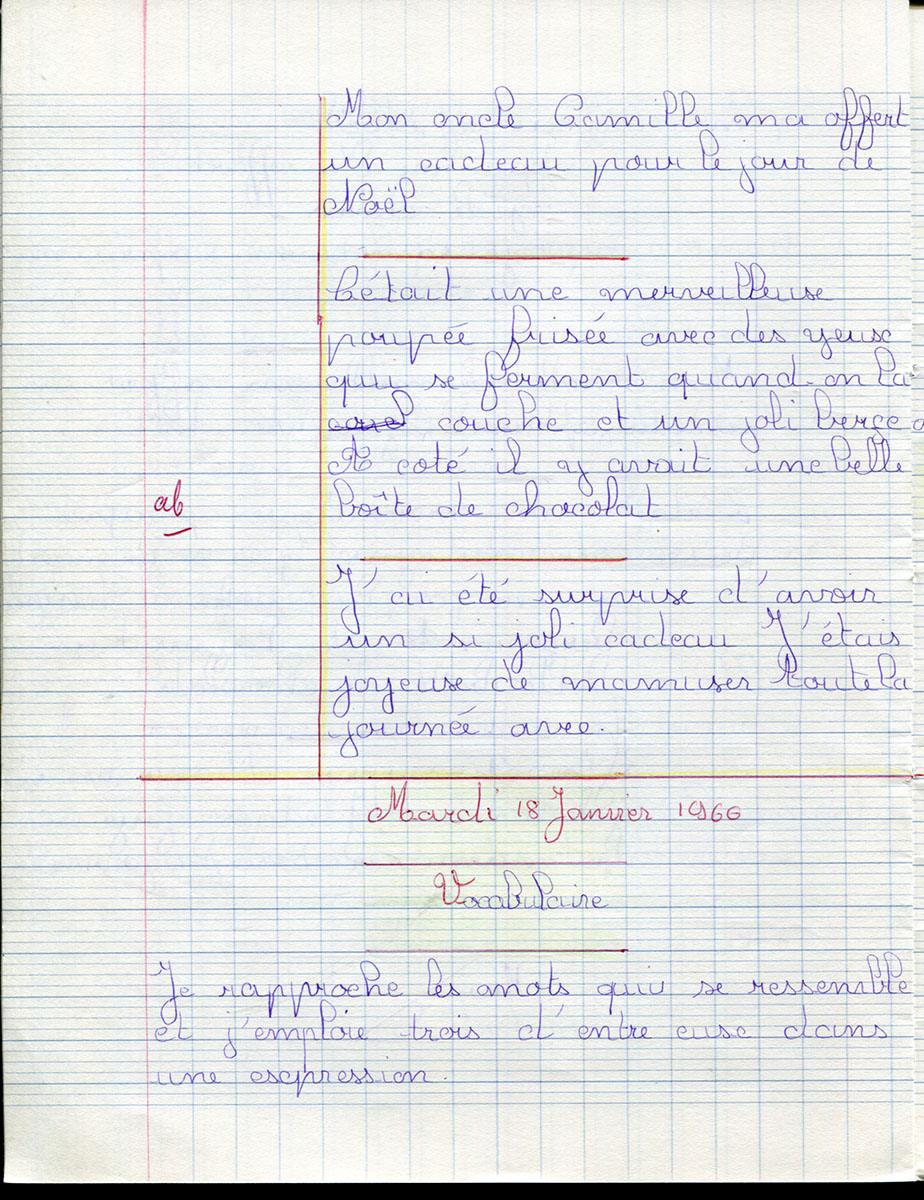 Mon oncle Camille ma offert
un cadeau pour le jour de
Noël
C'était une merveilleuse
poupée frisée avec des yeux
qui se ferment quand on la
couche et un joli berce
A coté il y avait une belle
ab boîte de chocolat
J'ai été surprise d'avoir
un si joli cadeau J'étais
joyeuse de mamuser toute la
journée avec.
Mardi 18 Janvier 1966
Vocabulaire
Je rapproche les mots qui se ressemble
et j'emploie trois d'entre eux dans
une expression.